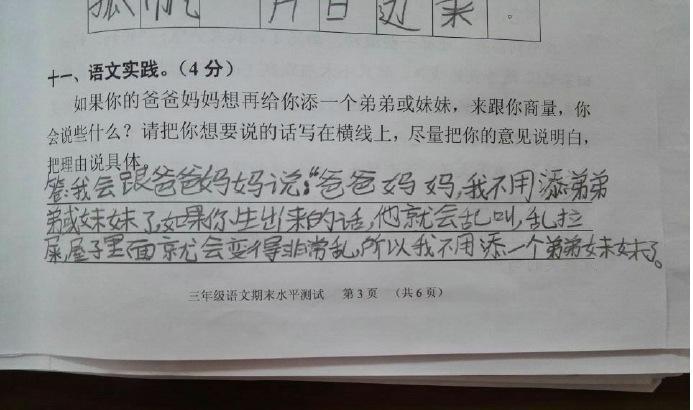 孤帆一片日边来。
十一、语文实践。（4分）
如果你的爸爸妈妈想再给你添一个弟弟或妹妹，来跟你商量，你
会说些什么？请把你想要说的话写在横线上，尽量把你的意见说明白，
把理由说具体。
答:我会跟爸爸妈妈说:“爸爸妈妈,我不用添弟弟
弟或妹妹了,如果你生出来的话,他就会乱叫,乱拉
屎,屋子里面就会变得非常乱,所以我不用添一个弟弟妹妹了。
三年级语文期末水平测试 第3页 （共6页）